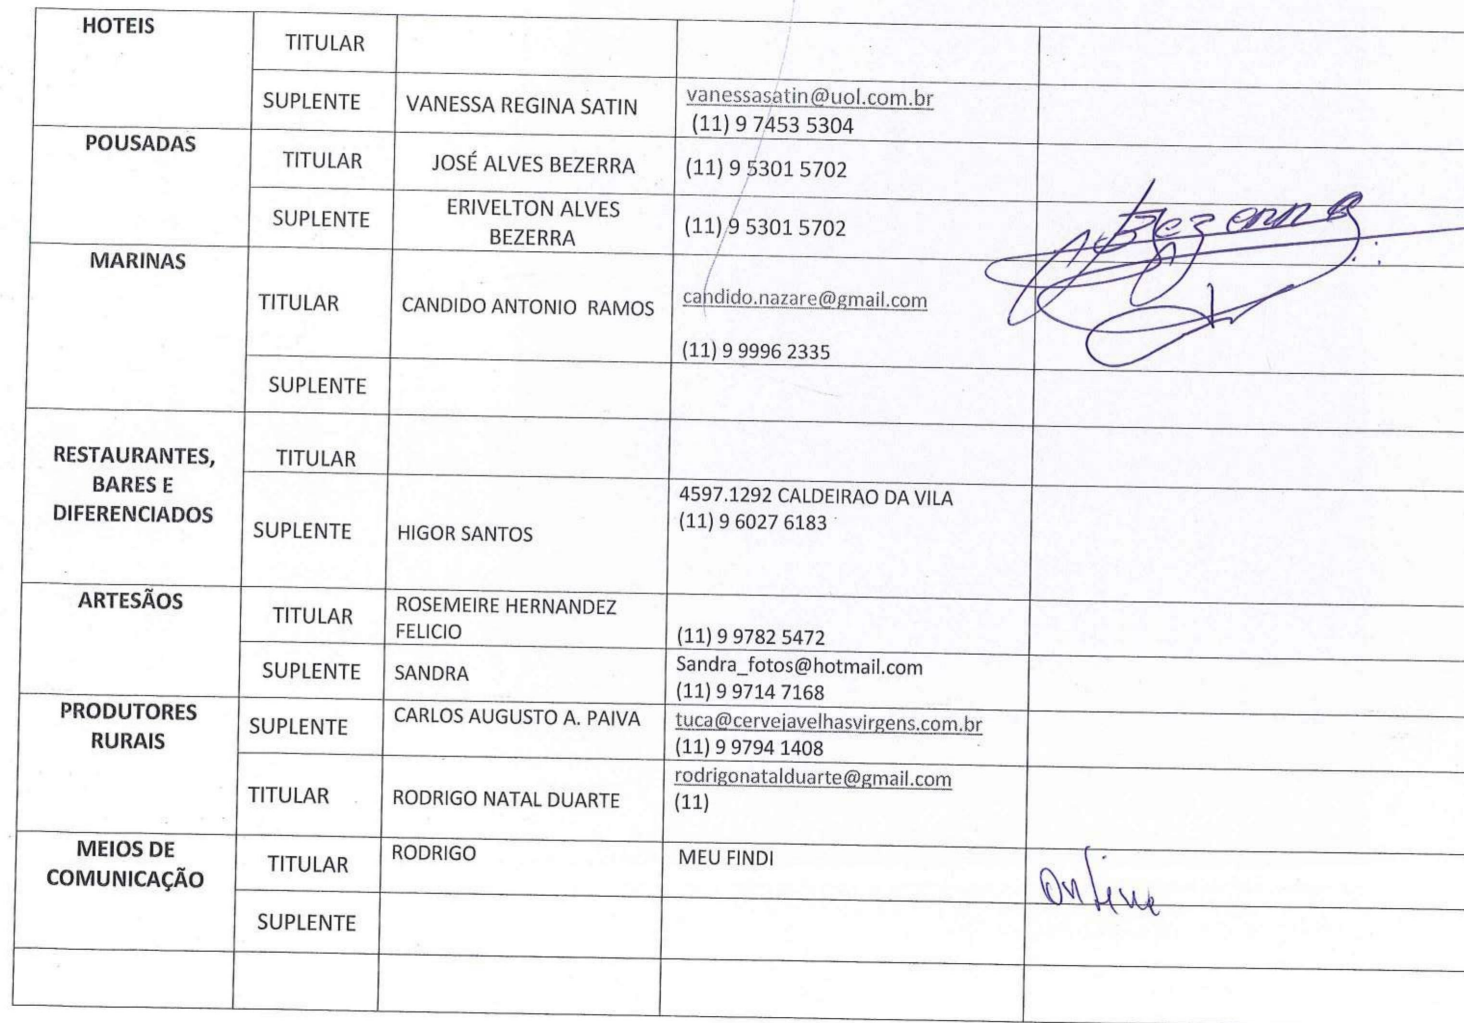 HOTEIS
TITULAR
SUPLENTE VANESSA REGINA SATIN vanessasatin@uol.com.br
(11) 9 7453 5304
POUSADAS
TITULAR JOSÉ ALVES BEZERRA (11) 9 5301 5702
SUPLENTE ERIVELTON ALVES
BEZERRA (11) 9 5301 5702
Bezerra
MARINAS
TITULAR CANDIDO ANTONIO RAMOS candido.nazare@gmail.com
(11) 9 9996 2335
SUPLENTE
RESTAURANTES,
BARES E
DIFERENCIADOS
TITULAR
SUPLENTE HIGOR SANTOS 4597.1292 CALDEIRAO DA VILA
(11) 9 6027 6183
ARTESÃOS
TITULAR ROSEMEIRE HERNANDEZ
FELICIO (11) 9 9782 5472
SUPLENTE SANDRA Sandra_fotos@hotmail.com
(11) 9 9714 7168
PRODUTORES
RURAIS
SUPLENTE CARLOS AUGUSTO A. PAIVA tuca@cervejavelhasvirgens.com.br
(11) 9 9794 1408
TITULAR RODRIGO NATAL DUARTE rodrigonatalduarte@gmail.com
(11)
MEIOS DE
COMUNICAÇÃO
TITULAR RODRIGO MEU FINDI online
SUPLENTE